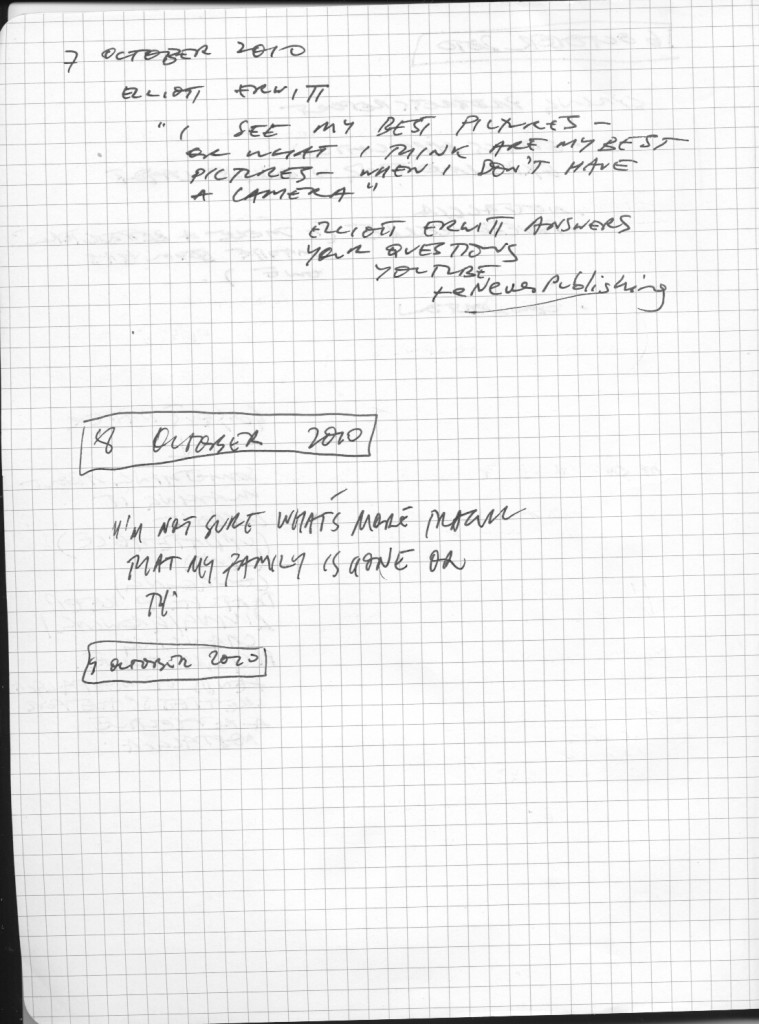 7 OCTOBER 2010
ELLIOTT ERWITT
"I SEE MY BEST PICTURES –
OR WHAT I THINK ARE MY BEST
PICTURES – WHEN I DON'T HAVE
A CAMERA"
ELLIOTT ERWITT ANSWERS
YOUR QUESTIONS
YOUTUBE
teNeuesPublishing
8 OCTOBER 2010
I'M NOT SURE WHAT'S MORE TRAGIC
THAT MY FAMILY IS GONE OR
9 OCTOBER 2010